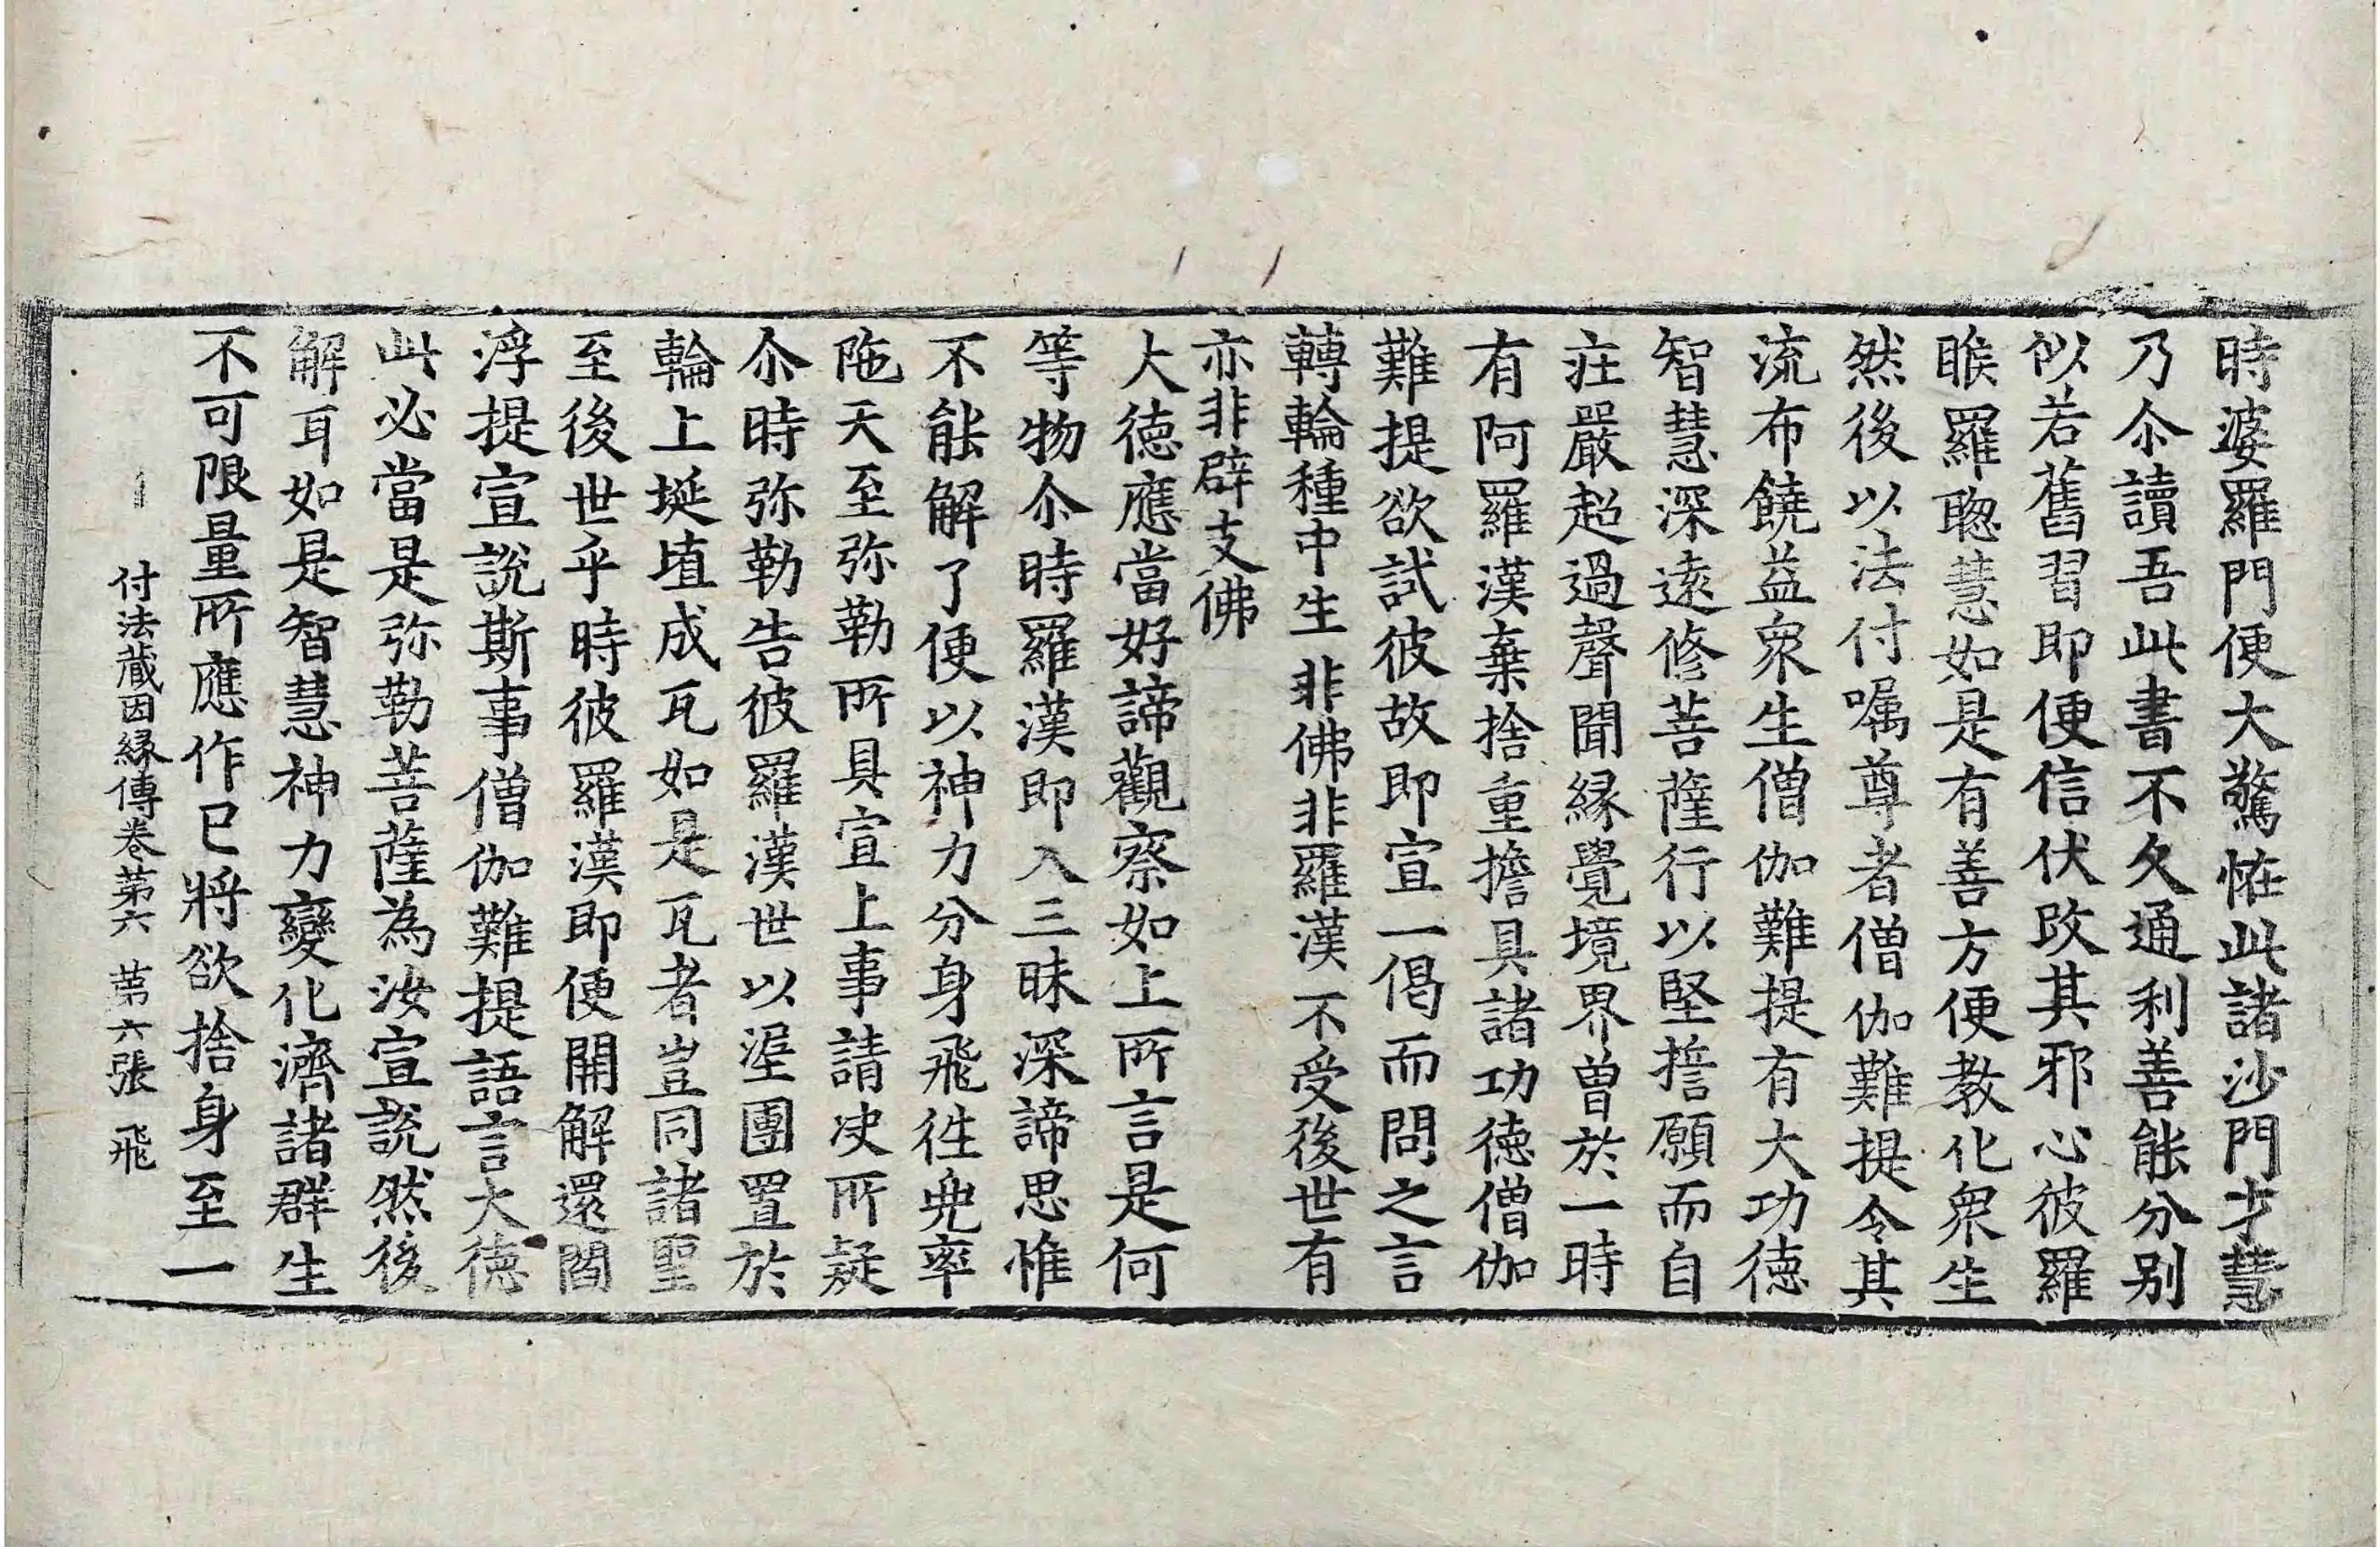 時婆羅門便大驚恠此諸沙門才慧
乃尒讀吾此書不久通利善能分别
似若舊習即便信伏改其邪心彼羅
睺羅聡慧如是有善方便教化衆生
然後以法付嘱尊者僧伽難提令其
流布饒益衆生僧伽難提有大功德
智慧深遠修菩薩行以堅誓願而自
庄嚴超過聲聞縁覺境界曽於一時
有阿羅漢棄捨重擔具諸功德僧伽
難提欲試彼故即宣一偈而問之言
轉輪種中生 非佛非羅漢 不受後世有
亦非辟支佛
大德應當好諦觀察如上所言是何
等物尒時羅漢即入三昧深諦思惟
不能解了便以神力分身飛徃兜率
陁天至弥勒所具宣上事請决所疑
尒時弥勒告彼羅漢世以埿團置於
輪上埏埴成瓦如是瓦者豈同諸聖
至後世乎時彼羅漢即便開解還閻
浮提宣說斯事僧伽難提語言大德
此必當是弥勒菩薩為汝宣說然後
解耳如是智慧神力變化濟諸群生
不可限量所應作已將欲捨身至一
付法蔵因縁傳卷第六 第六張 飛